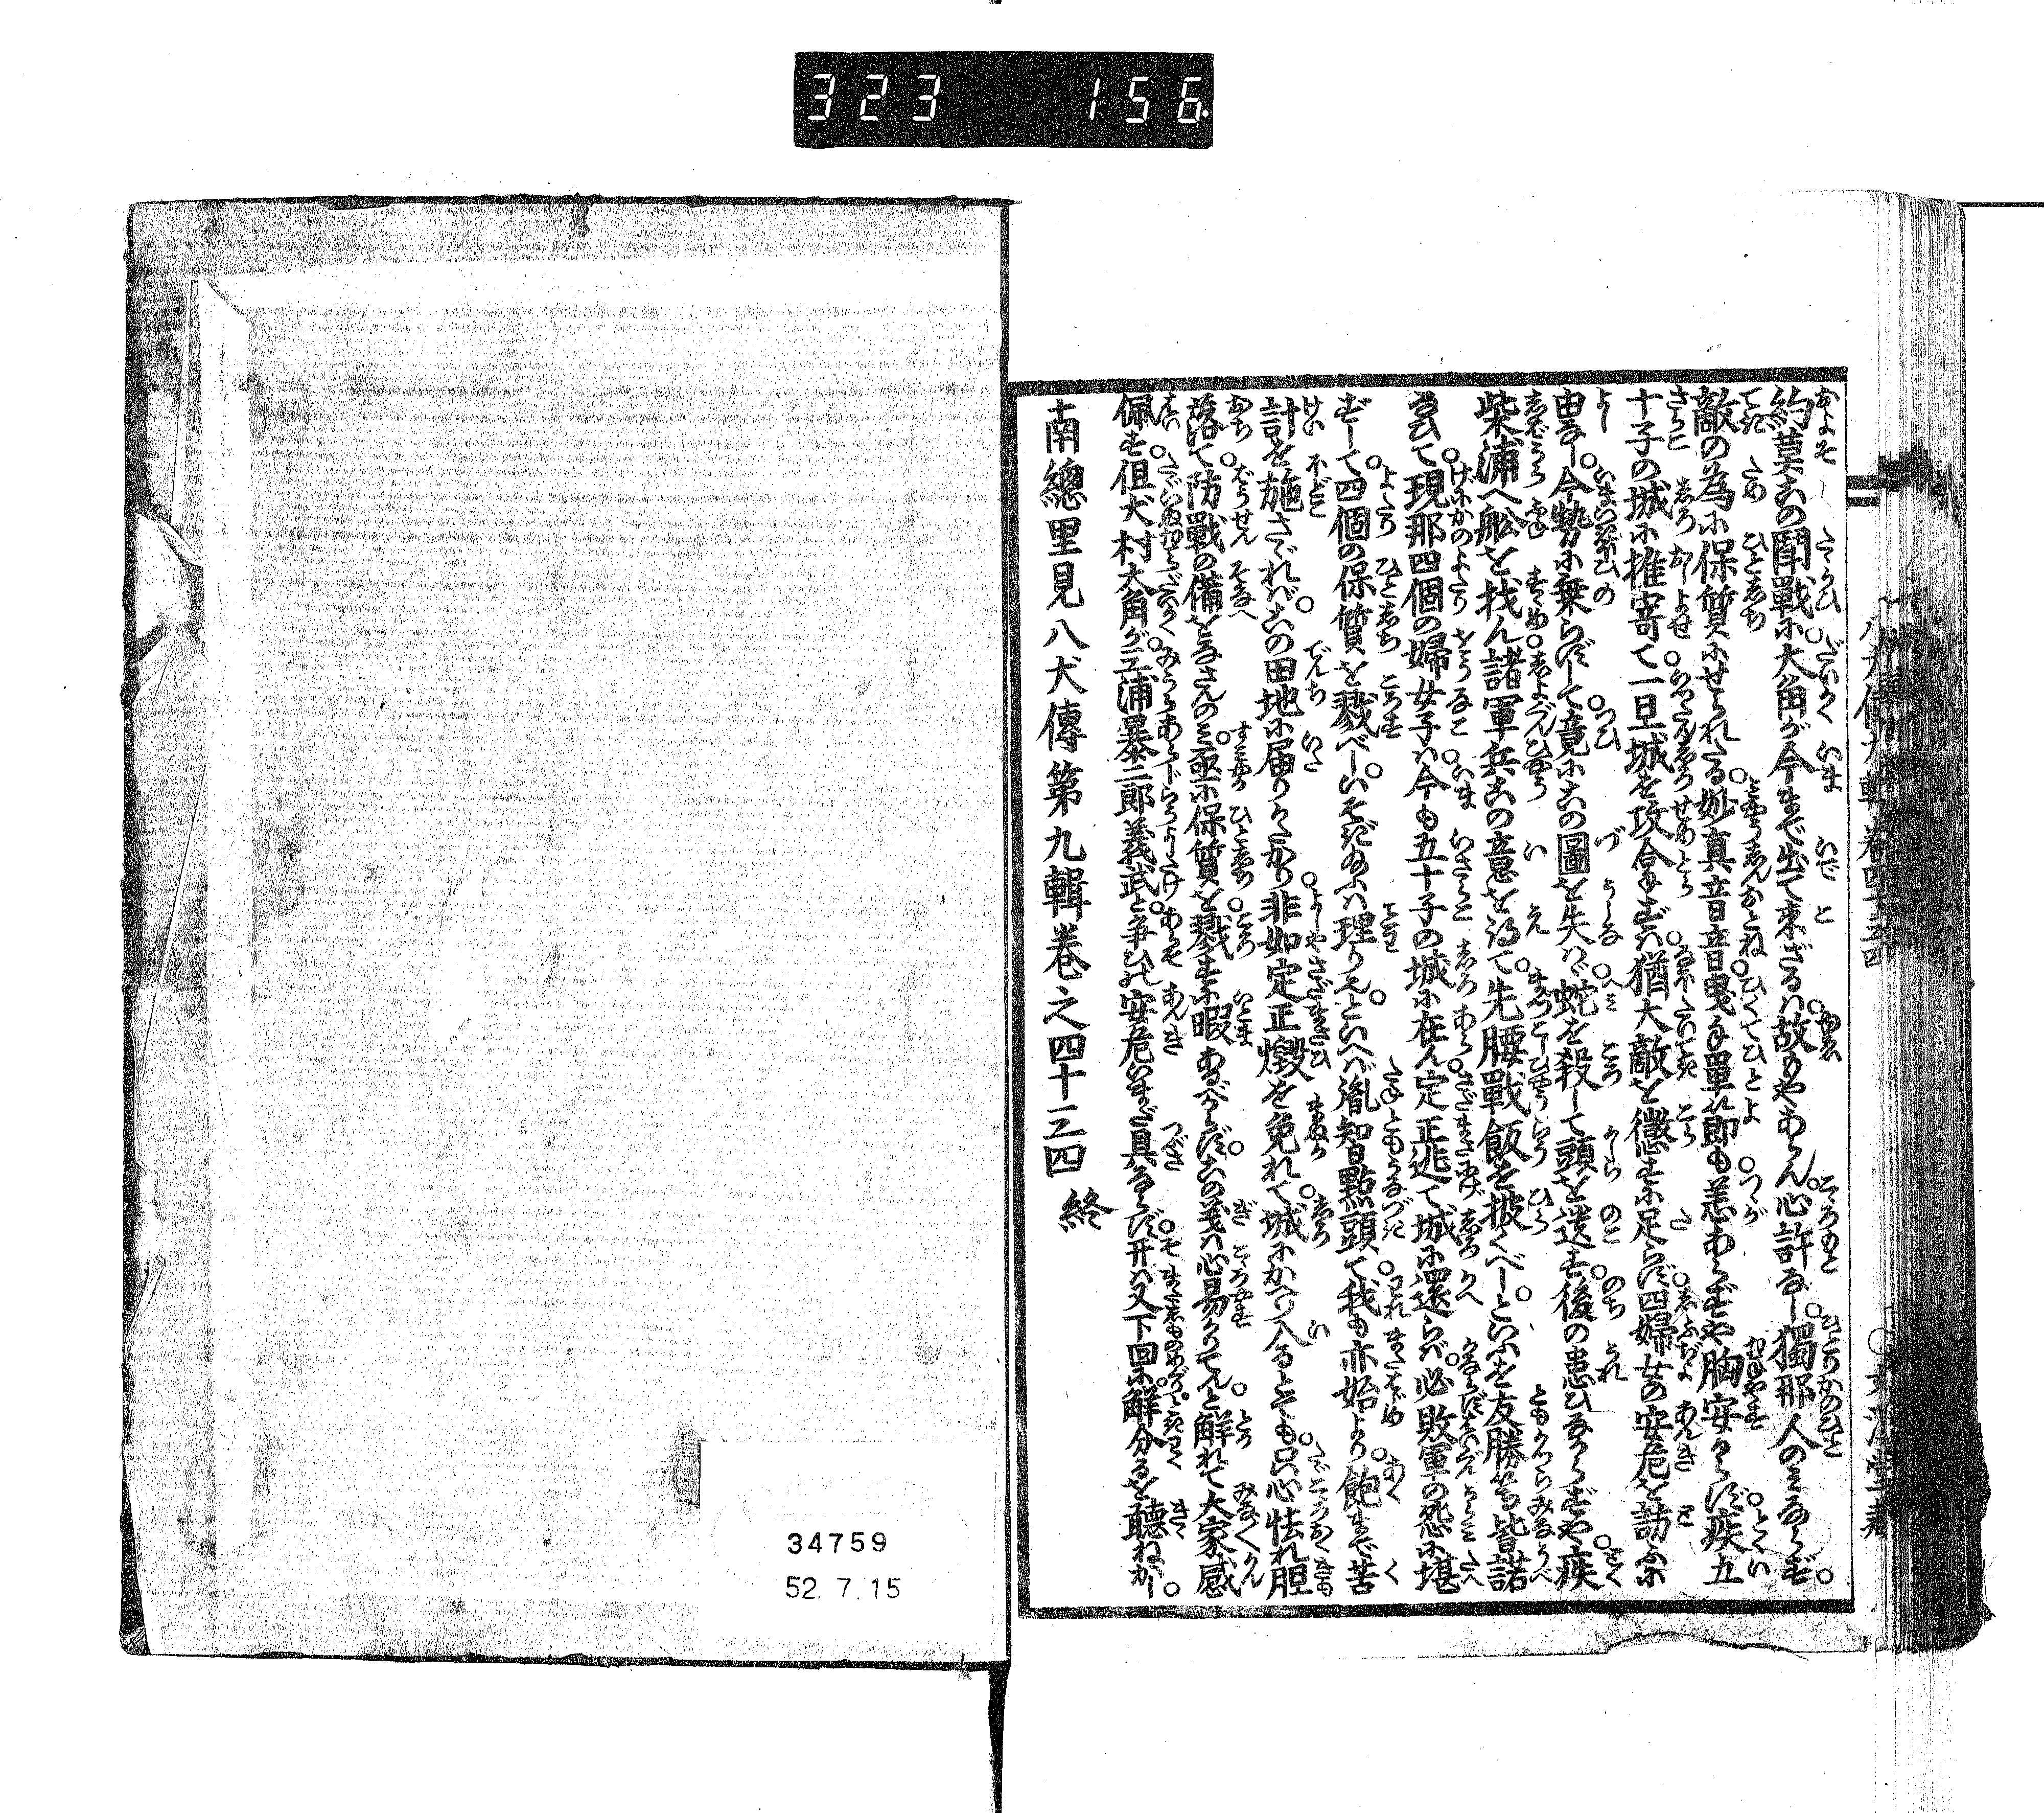 323 156
約莫这の鬪戰に大角が今まで出て来ざるは故もやあらん心許なし獨那人のみならず
敵の為に保質にせられたる妙真音音曳手單節も恙あらずや胸安からず疾五
十子の城に推寄て一旦城を攻合せずは猶大敵を懲すに足らず四婦女の安危を訪ふに
由なし今勢に乗らずして竟に这の圖を失はゞ蛇を殺して頭を送す後の患ひなからずや疾
柴浦へ舩を找ん諸軍兵这の意を得て先腰戰飯を披くべしといふを友勝等皆諾
ひて現那四個の婦女子は今も五十子の城に在ん定正逃て城に還らば必敗軍の怨に堪
ずして四個の保質を戮べしいそぎ給ふは理りなといへば胤智點頭て我も亦始より飽まで苦
計を施さゞれば这の田地に届りかたかり非如定正燬を免れて城にかへり入るとも只心怯れ胆
落て防戰の備をなさんのみ亟に保質を戮すに暇あるべからず这の義は心易かりてんと解れて大家感
佩す但犬村大角が三浦暴二郎義武と爭ひの安危いまだ具ならず开は又下回に解分るを聴ねかし
南總里見八犬傳第九輯卷之四十三四 終
34759
52. 7. 15